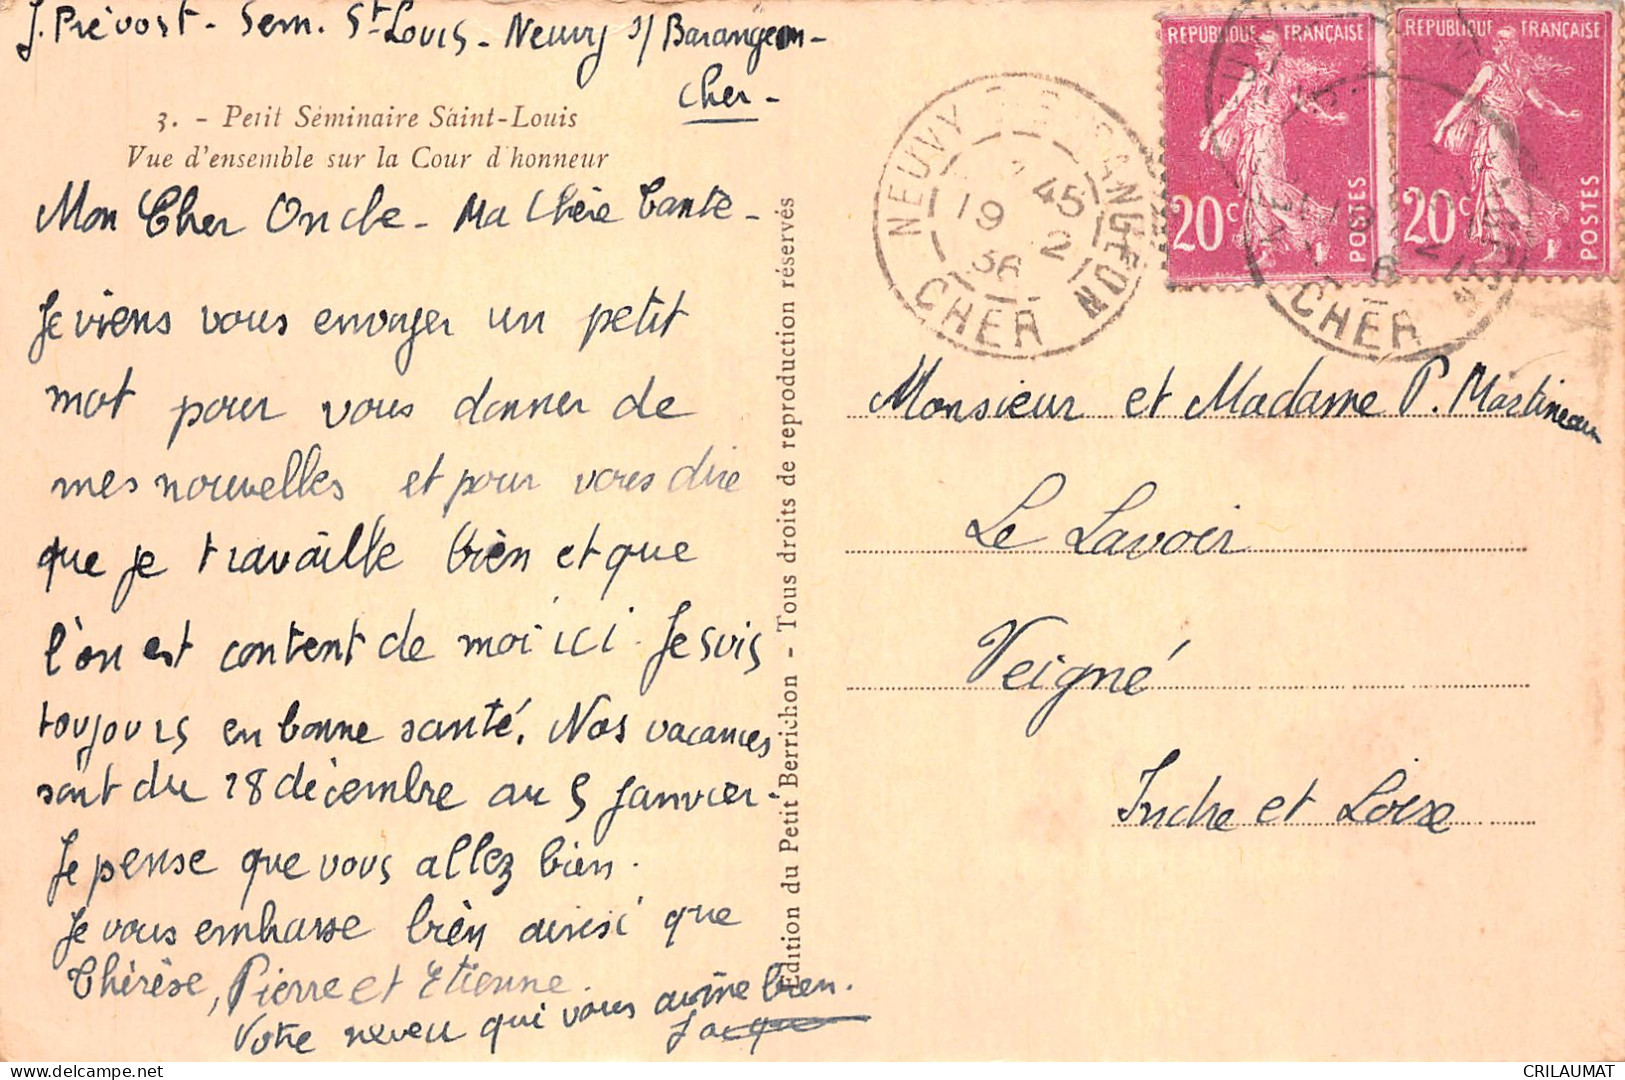 J. Prévost - Sem. St Louis - Neuvy s/ Barangeon -
Cher -
3. - Petit Séminaire Saint-Louis
Vue d'ensemble sur la Cour d'honneur
Mon Cher Oncle - Ma Chère Tante -
Je viens vous envoyer un petit
mot pour vous donner de
mes nouvelles et pour vous dire
que je travaille bien et que
l'on est content de moi ici. Je suis
toujours en bonne santé. Nos vacances
sont du 28 décembre au 5 janvier.
Je pense que vous allez bien.
Je vous embrasse bien ainsi que
Thérèse, Pierre et Etienne.
Votre neveu qui vous aime bien.
Jacques
Edition du Petit Berrichon - Tous droits de reproduction réservés
NEUVY BARANGEON
45
19 2
36
CHER
REPUBLIQUE FRANÇAISE
20c
POSTES
REPUBLIQUE FRANÇAISE
20c
POSTES
CHER
Monsieur et Madame P. Martineau
Le Lavoir
Veigné
Indre et Loire
CRILAUMAT